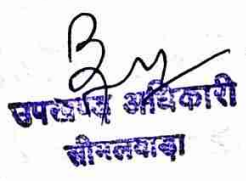 उपखण्ड अधिकारी
सीमलवाडा